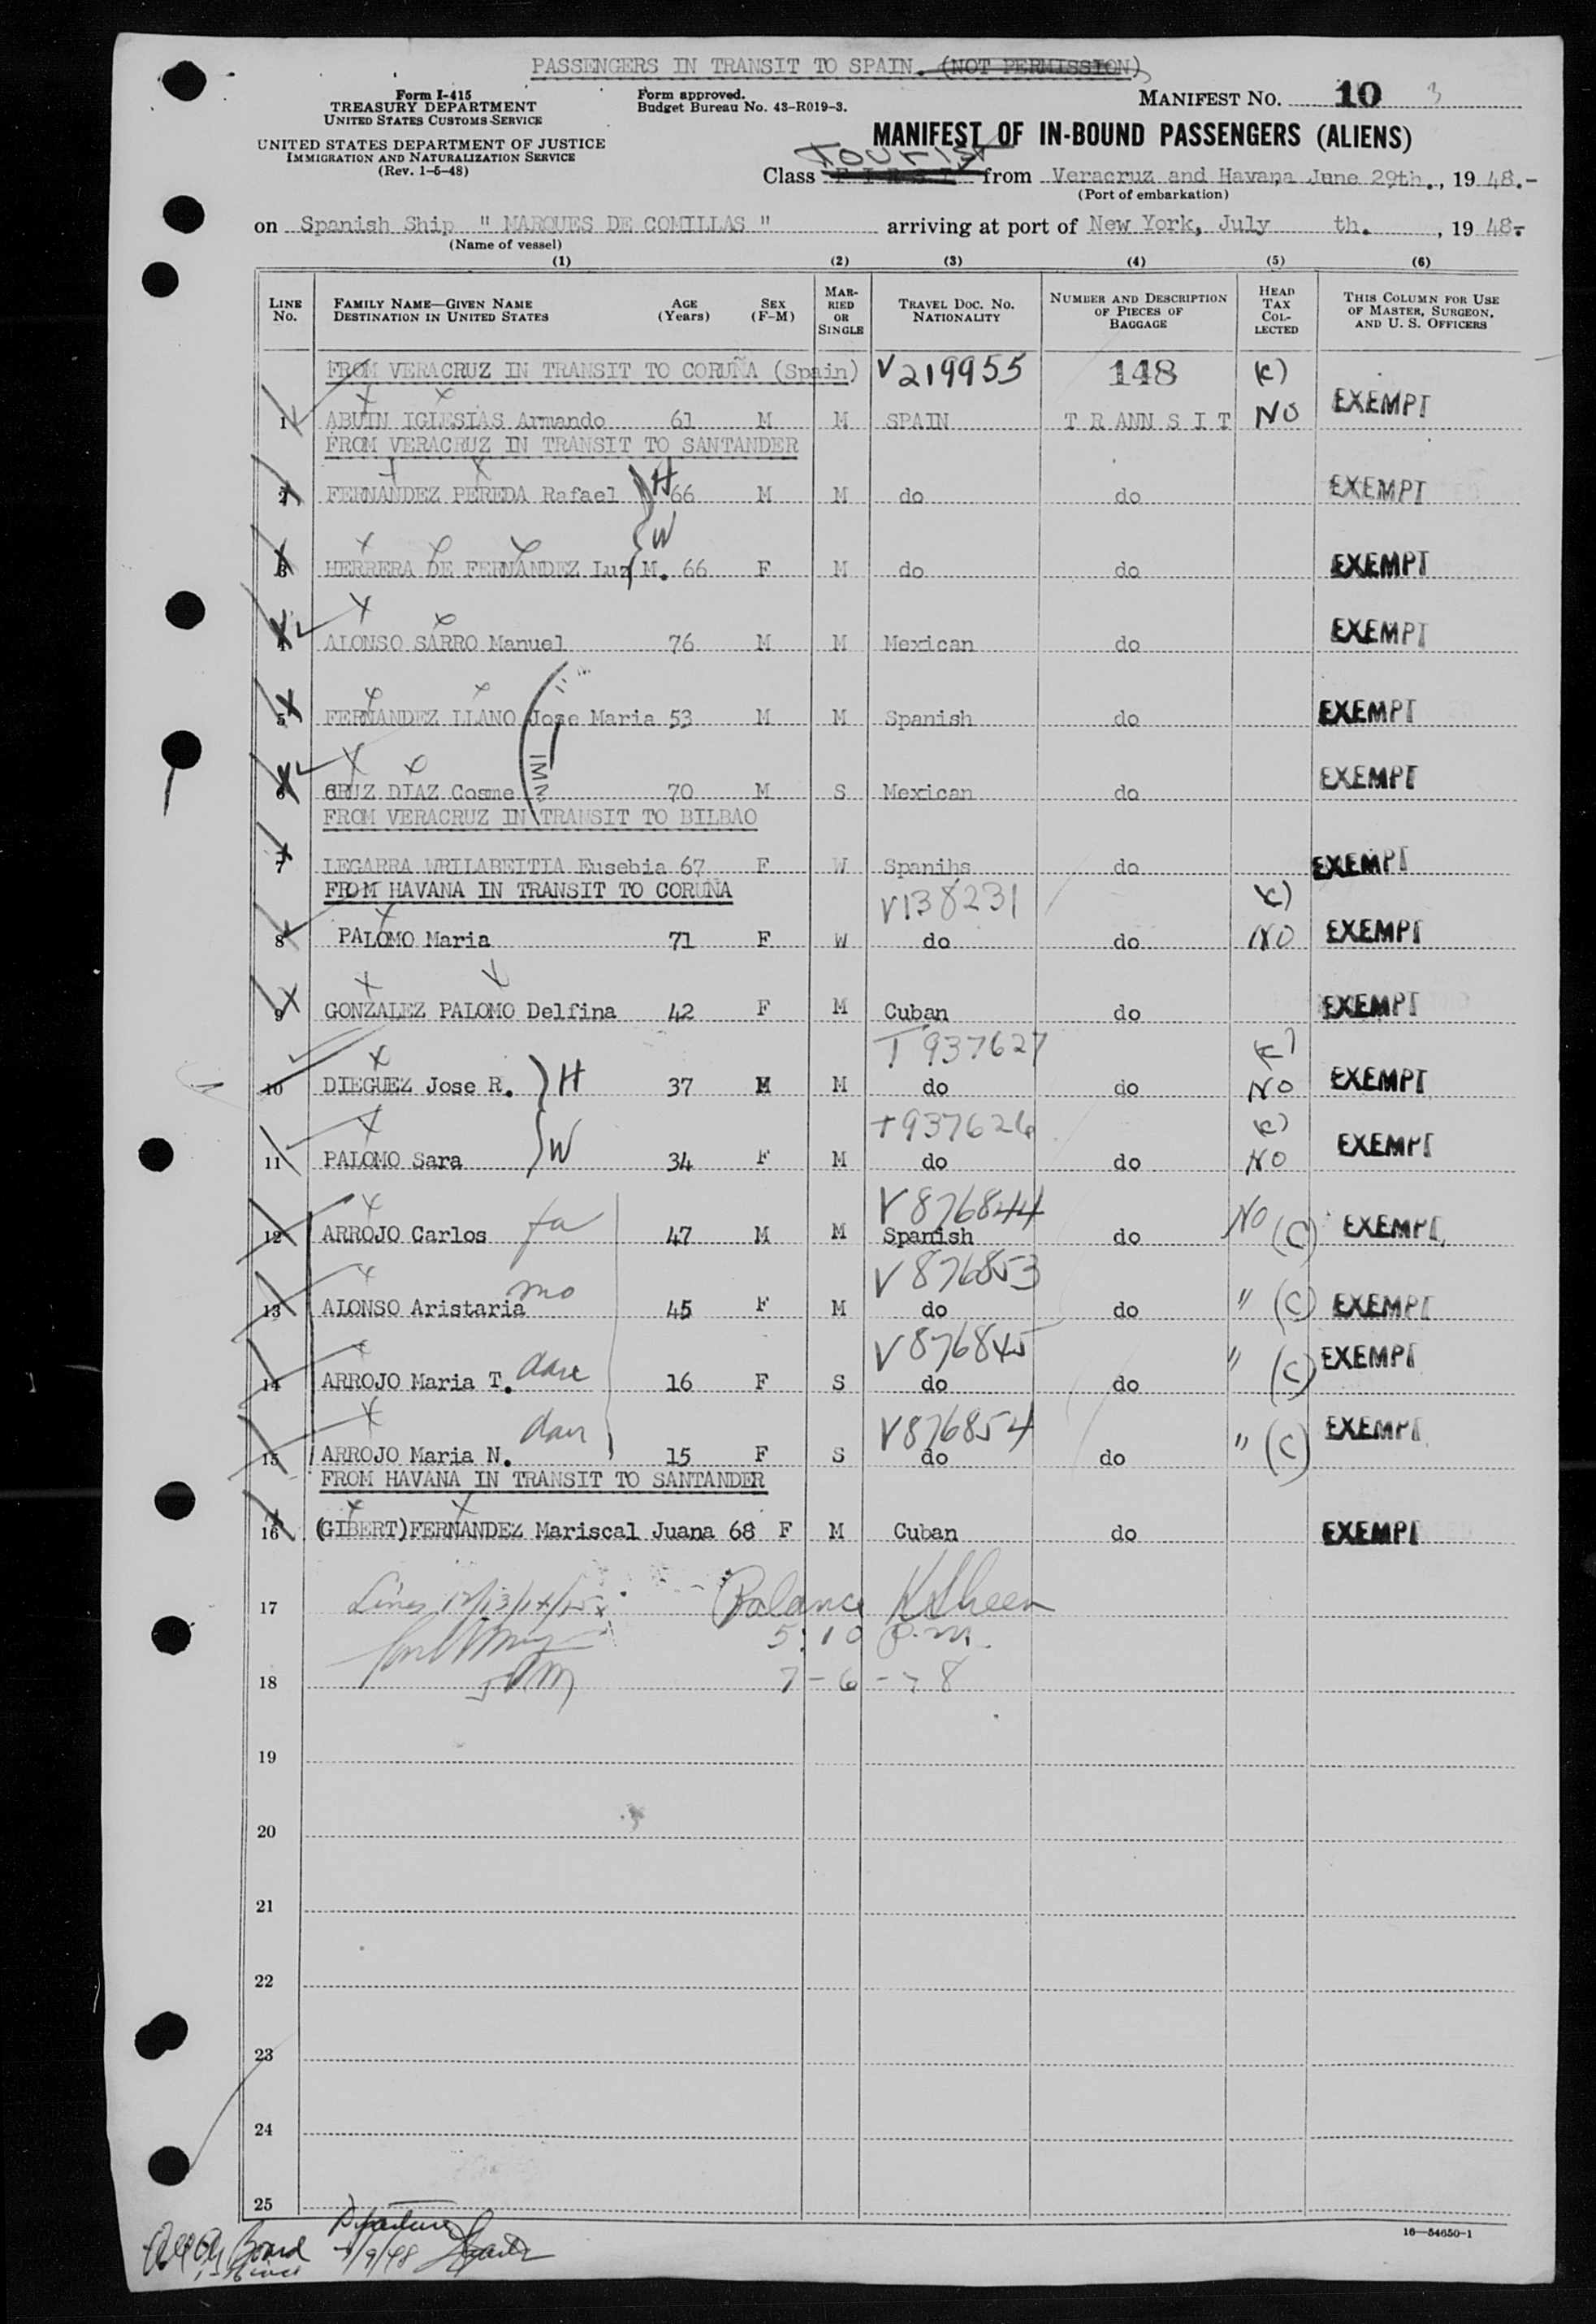 PASSENGERS IN TRANSIT TO SPAIN. (NOT PERMISSION)
Form I-415
TREASURY DEPARTMENT
UNITED STATES CUSTOMS SERVICE
UNITED STATES DEPARTMENT OF JUSTICE
IMMIGRATION AND NATURALIZATION SERVICE
(Rev. 1-5-48)
Form approved.
Budget Bureau No. 43-R019-3.
MANIFEST NO. 10 3
MANIFEST OF IN-BOUND PASSENGERS (ALIENS)
TOURIST
Class FIRST from Veracruz and Havana June 29th., 1948.-
(Port of embarkation)
on Spanish Ship " MARQUES DE COMILLAS " arriving at port of New York, July th. , 1948.-
(Name of vessel)
(1) (2) (3) (4) (5) (6)
LINE No. FAMILY NAME—GIVEN NAME DESTINATION IN UNITED STATES AGE (Years) SEX (F-M) MARRIED OR SINGLE TRAVEL DOC. NO. NATIONALITY NUMBER AND DESCRIPTION OF PIECES OF BAGGAGE HEAD TAX COLLECTED THIS COLUMN FOR USE OF MASTER, SURGEON, AND U. S. OFFICERS
FROM VERACRUZ IN TRANSIT TO CORUÑA (Spain) V219955 148 (c)
1 ABUIN IGLESIAS Armando 61 M M SPAIN T R ANN S I T NO EXEMPT
FROM VERACRUZ IN TRANSIT TO SANTANDER
2 FERNANDEZ PEREDA Rafael H 66 M M do do EXEMPT
W
3 HERRERA DE FERNANDEZ Luz M. 66 F M do do EXEMPT
4 ALONSO SARRO Manuel 76 M M Mexican do EXEMPT
5 FERNANDEZ LLANO Jose Maria 53 M M Spanish do EXEMPT
6 CRUZ DIAZ Cosme 70 M S Mexican do EXEMPT
FROM VERACRUZ IN TRANSIT TO BILBAO
7 LEGARRA WRILABEITIA Eusebia 67 F W Spanihs do EXEMPT
FROM HAVANA IN TRANSIT TO CORUÑA V138231 (c)
8 PALOMO Maria 71 F W do do NO EXEMPT
9 GONZALEZ PALOMO Delfina 42 F M Cuban do EXEMPT
T937627
10 DIEGUEZ Jose R. H 37 M M do do NO EXEMPT
T937626
11 PALOMO Sara W 34 F M do do NO EXEMPT
V876844
12 ARROJO Carlos fa 47 M M Spanish do NO (C) EXEMPT
V876853
13 ALONSO Aristaria mo 45 F M do do " (C) EXEMPT
V876845
14 ARROJO Maria T. dau 16 F S do do " (C) EXEMPT
V876854
15 ARROJO Maria N. dau 15 F S do do " (C) EXEMPT
FROM HAVANA IN TRANSIT TO SANTANDER
16 (GIBERT)FERNANDEZ Mariscal Juana 68 F M Cuban do EXEMPT
17 Lines 12/13/14/15 Balance
5:10 P.M.
18 7-6-48
19
20
21
22
23
24
25
Departure
7/9/48
Board
16—54650-1